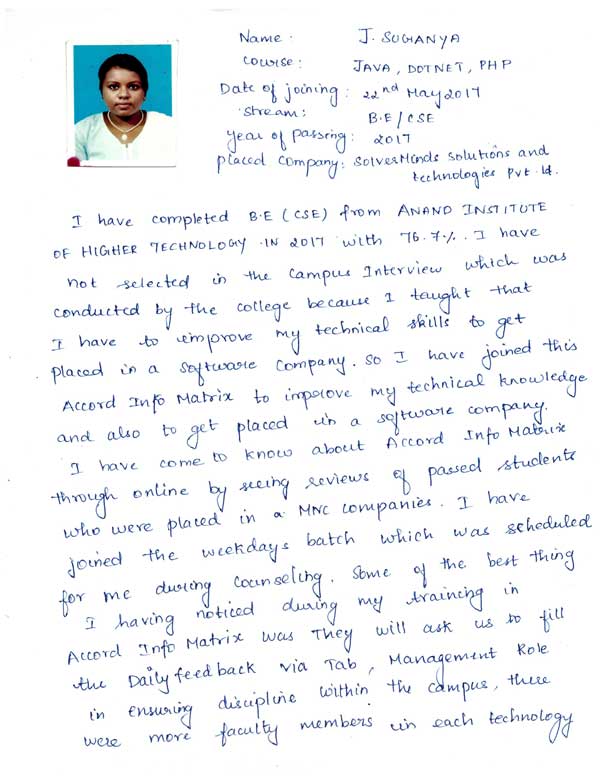 Name : J. SUGANYA
course : JAVA, DOTNET, PHP
Date of joining : 22nd May 2017
stream : B.E / CSE
year of passing : 2017
placed company : SolverMinds solutions and
technologies Pvt ltd.
I have completed B.E (CSE) from ANAND INSTITUTE
OF HIGHER TECHNOLOGY IN 2017 with 76.7%. I have
not selected in the Campus Interview which was
conducted by the college because I taught that
I have to improve my technical skills to get
placed in a software company. So I have joined this
Accord Info Matrix to improve my technical knowledge
and also to get placed in a software company.
I have come to know about Accord Info Matrix
through online by seeing reviews of passed students
who were placed in a MNC companies. I have
joined the weekdays batch which was scheduled
for me during counseling. Some of the best thing
I having noticed during my training in
Accord Info Matrix was They will ask us to fill
the Daily feedback via Tab, Management Role
in ensuring discipline within the campus, there
were more faculty members in each technology